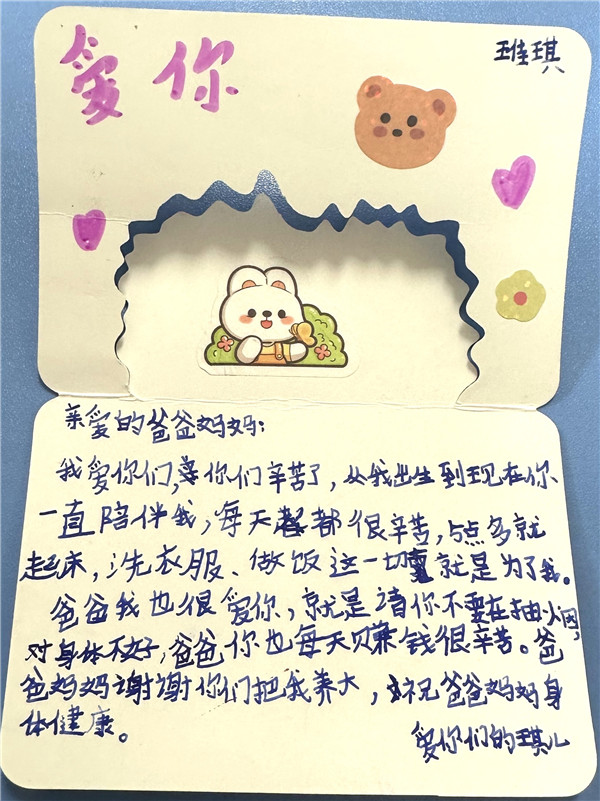 爱你
琟琪
亲爱的爸爸妈妈：
我爱你们，你们辛苦了，从我出生到现在你
一直陪伴我，每天都很辛苦，5点多就
起床，洗衣服、做饭这一切就是为了我。
爸爸我也很爱你，就是请你不要在抽火因，
对身体不好，爸爸你也每天赚钱很辛苦。爸
爸妈妈谢谢你们把我养大，祝爸爸妈妈身
体健康。
爱你们的琪儿